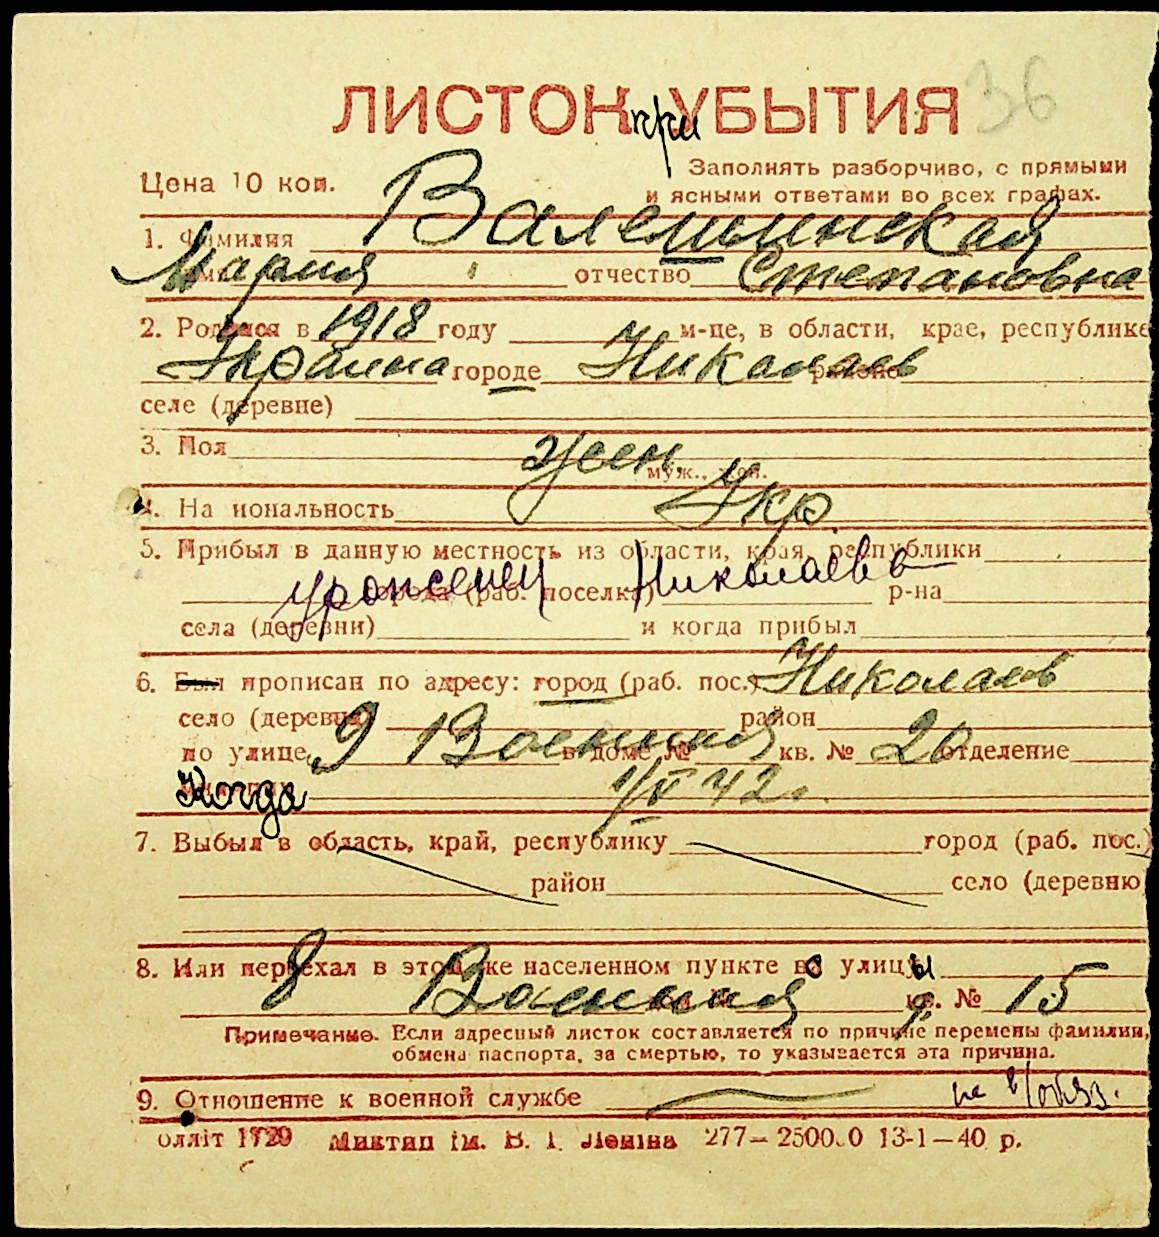 36
ЛИСТОК при УБЫТИЯ
Цена 10 коп.
Заполнять разборчиво, с прямыми
и ясными ответами во всех графах.
1. Фамилия Валешинская
Мария отчество Степановна
2. Родился в 1918 году м-це, в области, крае, республике
Украина городе Николаев районе
селе (деревне)
3. Пол жен. муж., жен.
4. Национальность Укр.
5. Прибыл в данную местность из области, края, республики
уроженец города (раб. поселка) Николаева р-на
села (деревни) и когда прибыл
6. Был прописан по адресу: город (раб. пос.) Николаев
село (деревня) район
по улице 9 Военная в доме № кв. № 20 отделение
Когда 1/V 42 г.
7. Выбыл в область, край, республику город (раб. пос.)
район село (деревню
8. Или переехал в этом же населенном пункте с улицы
8 Военная кв. № 15
Примечание. Если адресный листок составляется по причине перемены фамилии,
обмена паспорта, за смертью, то указывается эта причина.
9. Отношение к военной службе не в/обяз.
олліт 1729 Миктип ім. В. І. Леніна 277—250000 13-1—40 р.